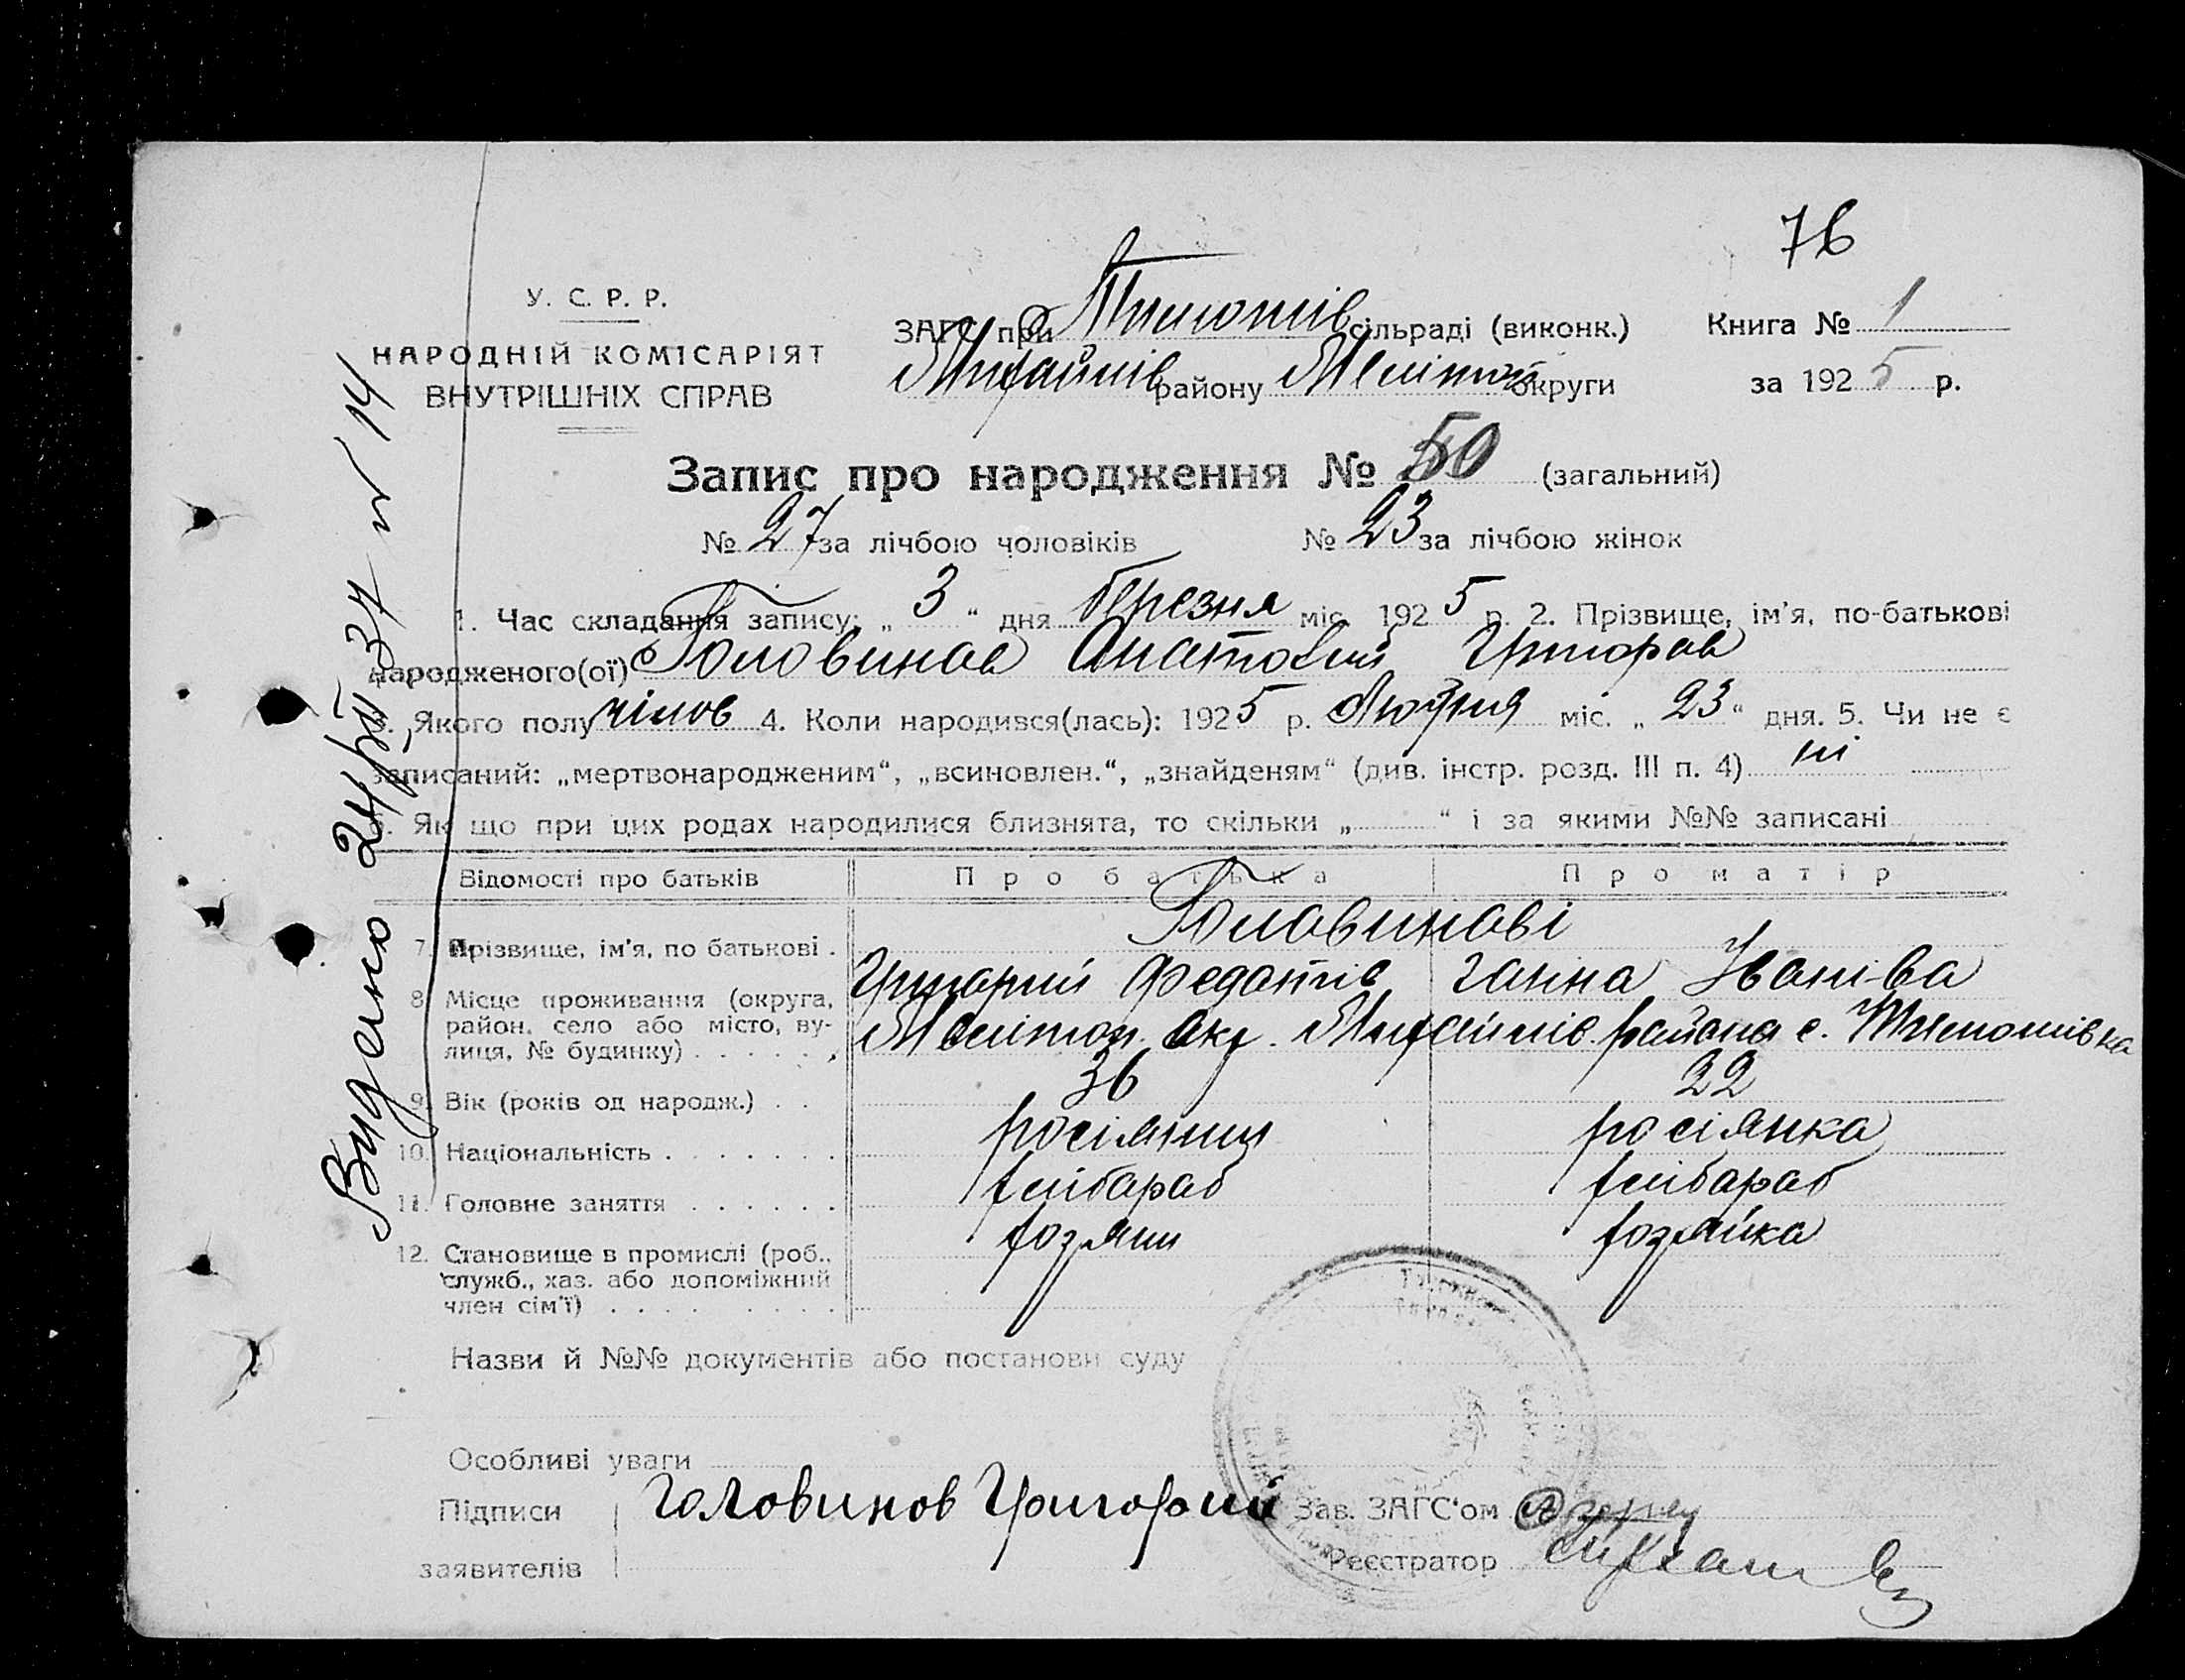 76
У. С. Р. Р.
НАРОДНІЙ КОМІСАРІЯТ
ВНУТРІШНІХ СПРАВ
ЗАГС при Тимошів сільраді (виконк.)
Михайлів району Меліто округи
Книга № 1
за 1925 р.
Запис про народження № 50 (загальний)
№ 27 за лічбою чоловіків № 23 за лічбою жінок
1. Час складання запису: „ 3 “ дня березня міс. 1925 р. 2. Прізвище, ім’я, по-батькові
народженого(ої) Головинов Анатолий Григоров
3. Якого полу чілов 4. Коли народився(лась): 1925 р. Лютня міс. „ 23 “ дня. 5. Чи не є
записаний: „мертвонародженим“, „всиновлен.“, „знайденям“ (див. інстр. розд. III п. 4) ні
6. Як що при цих родах народилися близнята, то скільки „ “ і за якими №№ записані
Відомості про батьків Про батька Про матір
Головинові
7. Прізвище, ім’я, по батькові . Григорий Федотів Ганна Іванівна
8. Місце проживання (округа,
район, село або місто, ву-
лиця, № будинку) . . . . . . Меліtоп. окр. Михайлів. района с. Тимошівка
9. Вік (років од народж.) . . 36 22
10. Національність . . . . . . . росіянин росіянка
11. Головне заняття . . . . . . хлібороб хлібороб
12. Становище в промислі (роб.,
служб., хаз. або допоміжний
член сім’ї) . . . . . . . . . хозяин хозяйка
Назви й №№ документів або постанови суду
Особливі уваги
Підписи Головинов Григорий Зав. ЗАГС‘ом
заявителів Реєстратор
Видано 24/VII 37 № 14